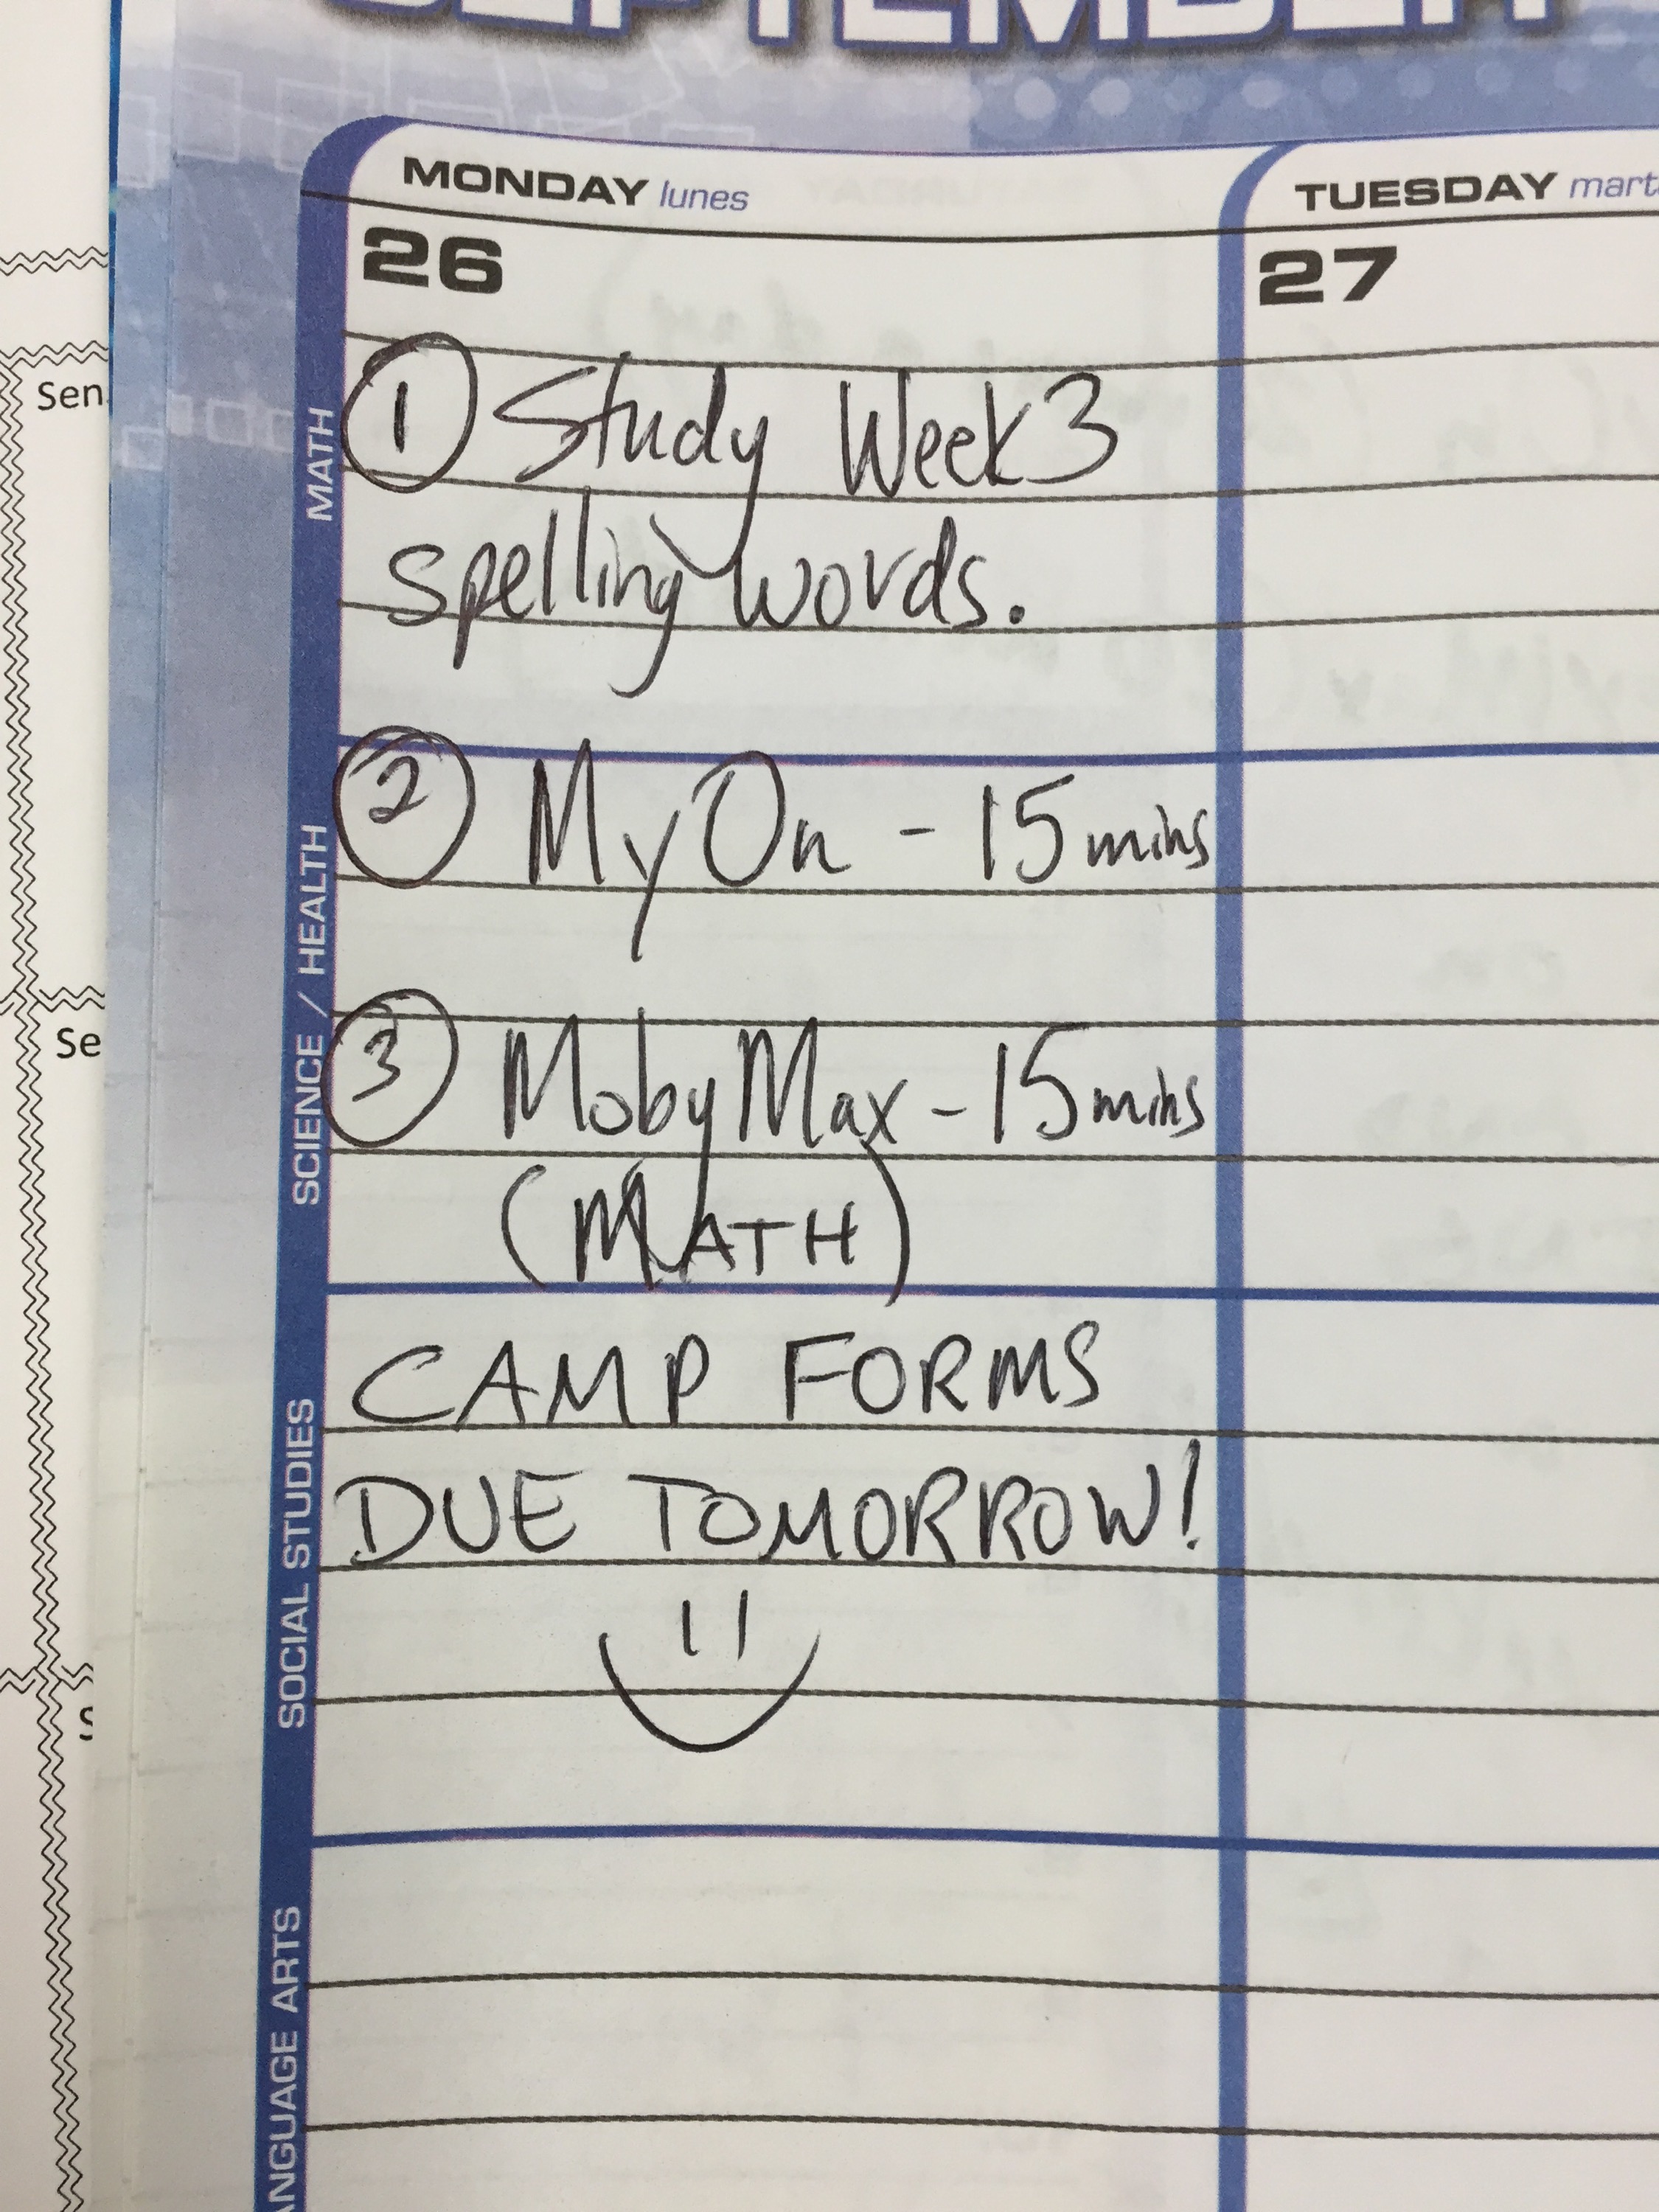 SEPTEMBER
MONDAY lunes
TUESDAY
26
27
MATH
① Study Week 3
spelling words.
SCIENCE / HEALTH
② MyOn - 15 mins
③ MobyMax - 15 mins
(MATH)
SOCIAL STUDIES
CAMP FORMS
DUE TOMORROW!